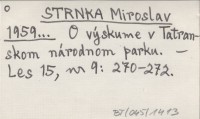 STRNKA Miroslav
1959... O výskume v Tatran-
skom národnom parku. —
Les 15, nr 9: 270-272.
BT/045/1413